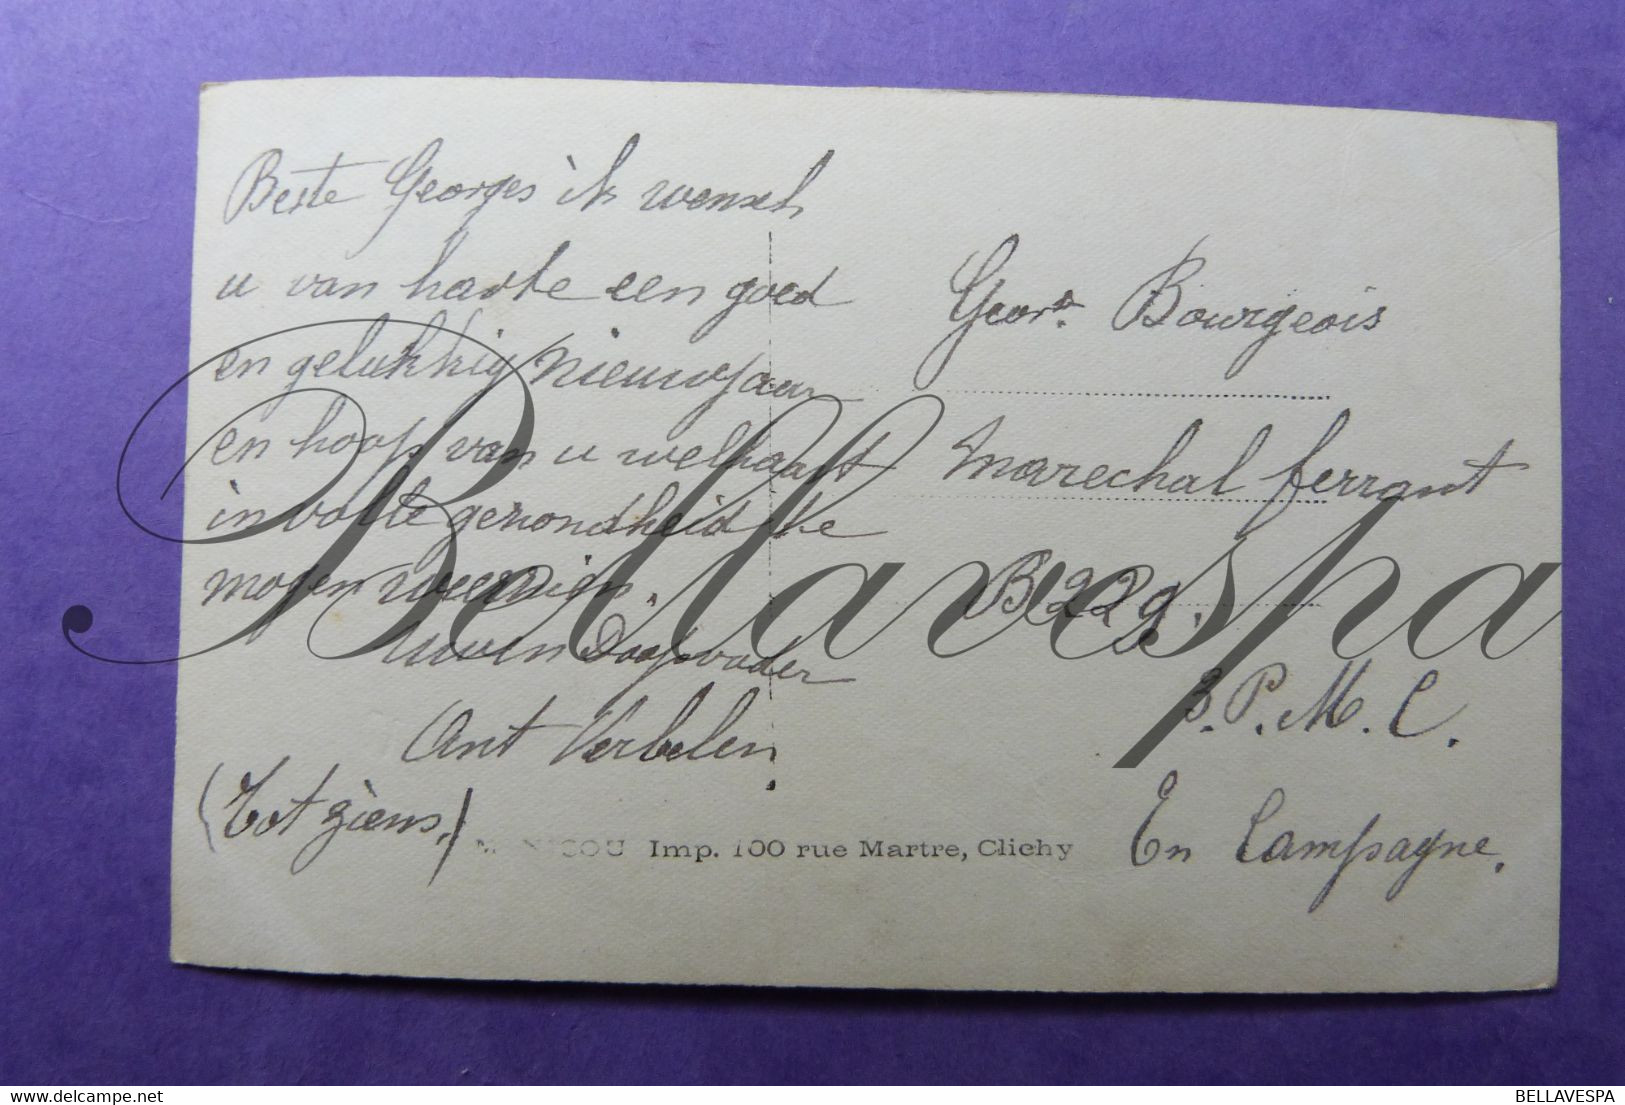 Beste Georges ik wensch
u van harte een goed
en gelukkig nieuwjaar
en hoop van u welhaast
in volle gezondheid te
mogen weerzien.
uwen Doopvader
Ant Verbelen.
(Tot ziens.)
Geors. Bourgeois
marechal ferrant
B229.
3.P.M.C.
En Campagne.
Imp. 100 rue Martre, Clichy
Bellavespa
BELLAVESPA